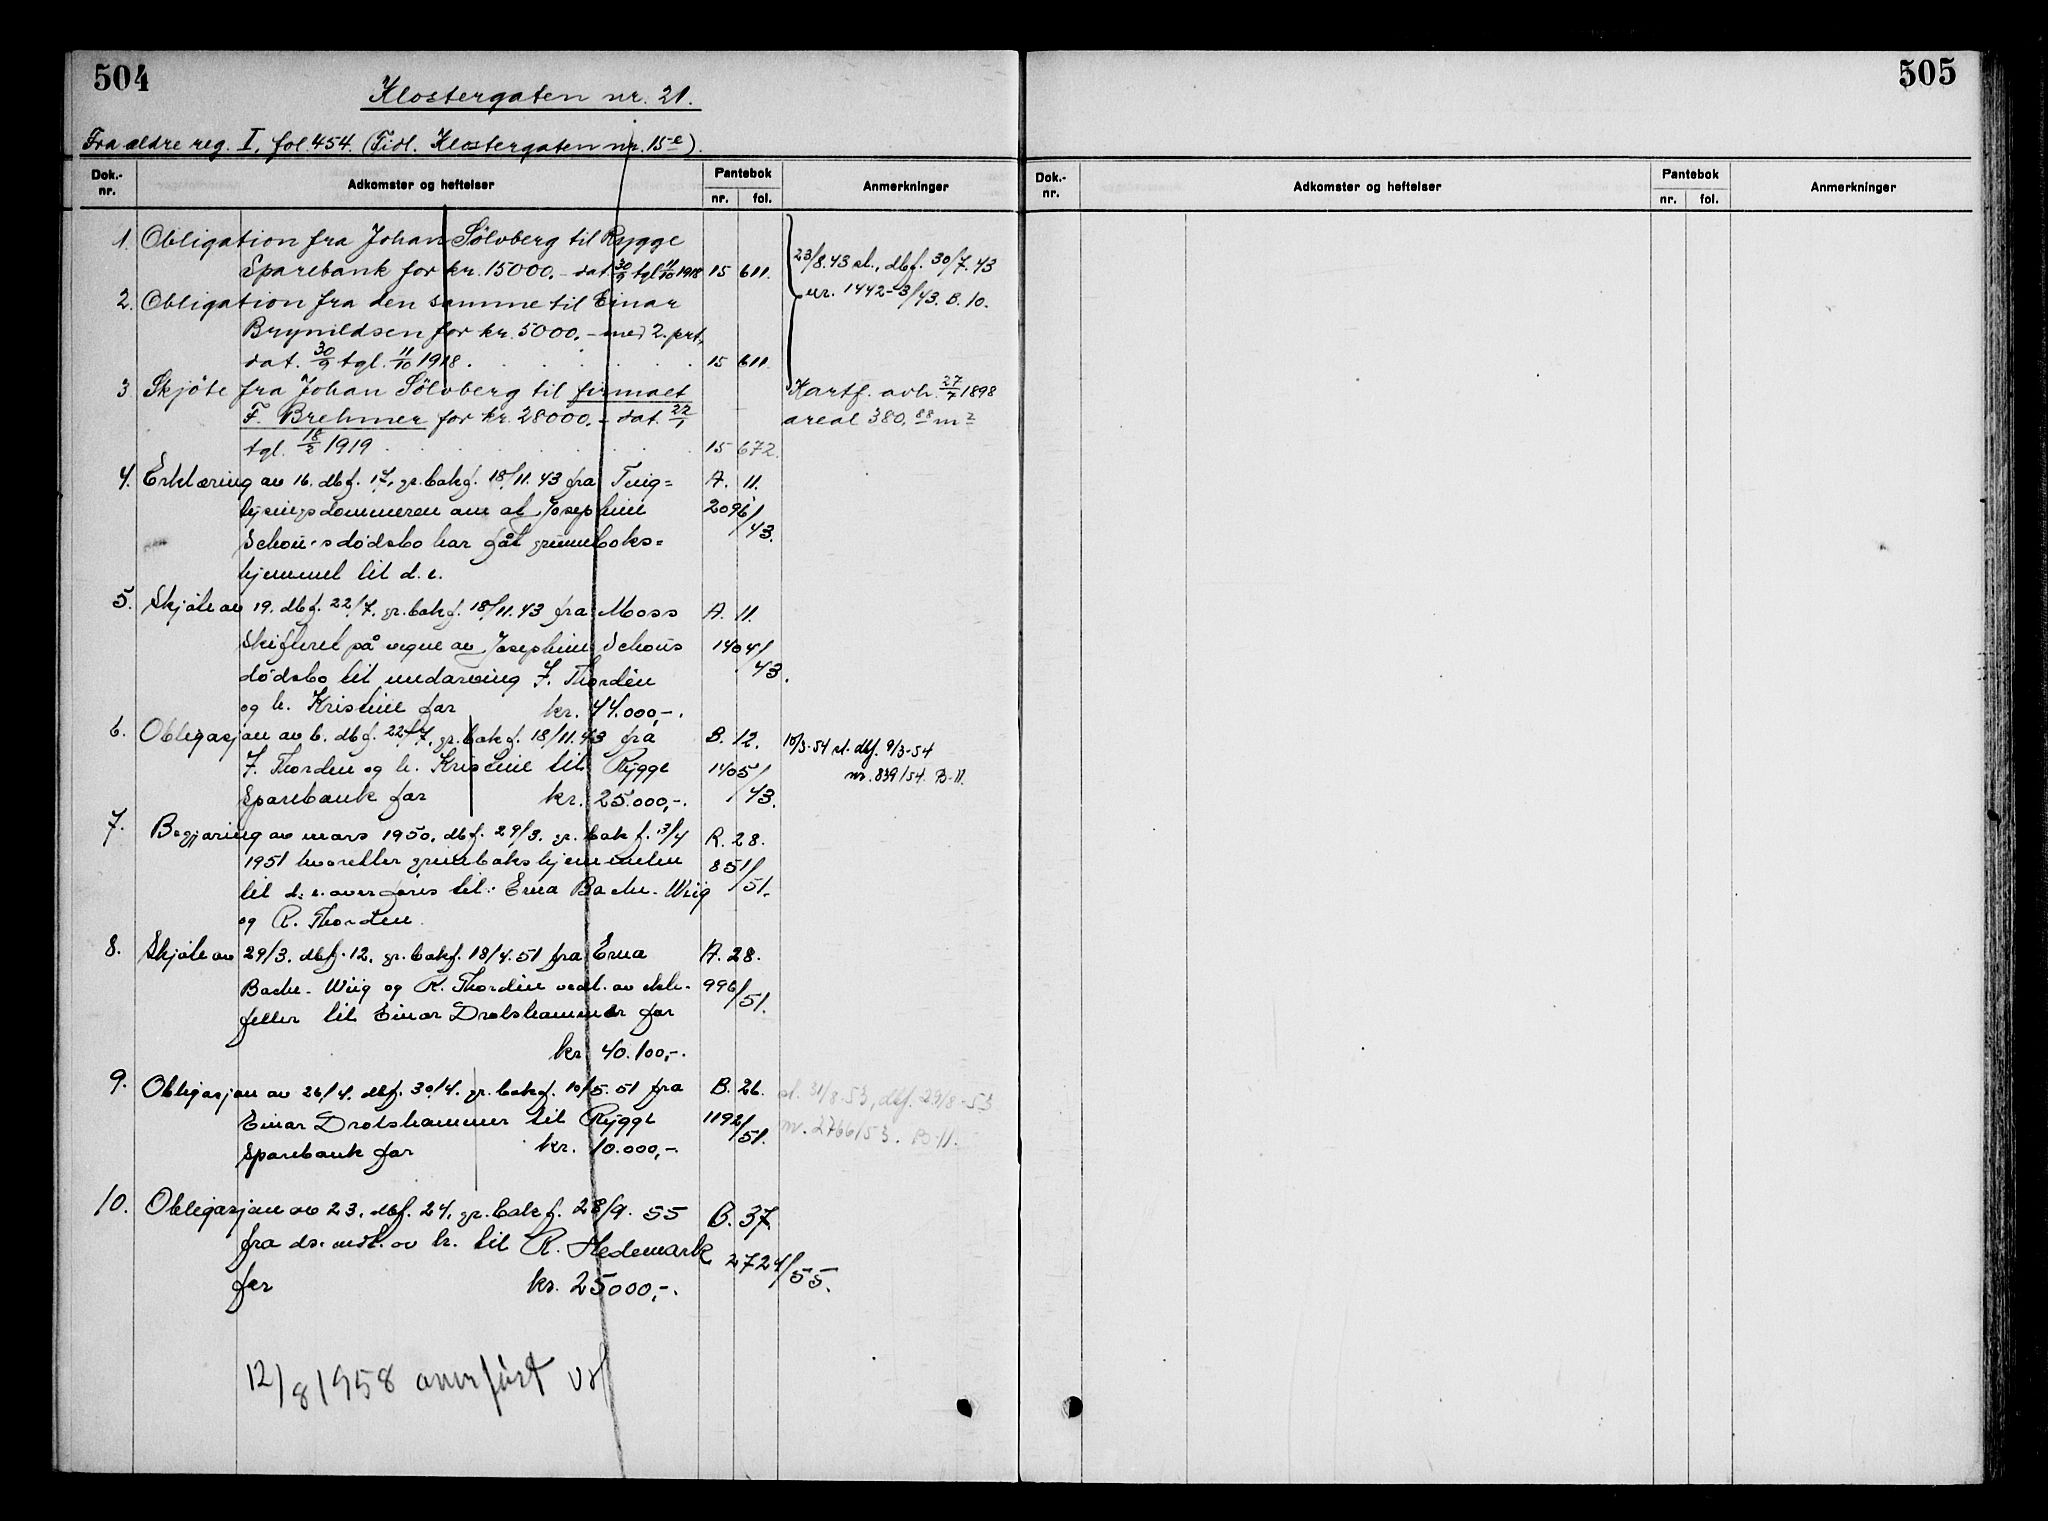 504
Klostergaten nr. 21.
Fra ældre reg. I, fol. 454. (Tidl. Klostergaten nr. 15 e).
Dok.-nr. Adkomster og heftelser Pantebok nr. fol. Anmerkninger
1. Obligation fra Johan Sölvberg til Rygge
Sparebank for kr. 15000.- dat. 30/9 tgl. 11/10 1918 15 611.
23/8.43 sl., dbf. 30/7.43
nr. 1442-3/43. B. 10.
2. Obligation fra den samme til Einar
Brynildsen for kr. 5000.- med 2. prt.
dat. 30/9 tgl. 11/10 1918. 15 611.
3 Skjöte fra Johan Sölvberg til firmaet
F. Brehmer for kr. 28000.- dat. 22/1
tgl. 18/2 1919 15 672.
Kartf. avh. 27/7 1898
areal 380.88 m2
4. Erklæring av 16. dbf. 17. gr.bokf. 18/11.43 fra Ting= A. 11.
lysningsdommeren om at Josephine 2096/43.
Schou's dödsbo har fåt grunnboks=
hjemmel til d. e.
5. Skjöte av 19. dbf. 22/7. gr.bokf. 18/11.43 fra Moss A. 11.
Skifteret på vegne av Josephine Schous 1404/43.
dödsbo til F. Thordén
og h. Kristine for kr. 44.000,-.
6. Obligasjon av 6. dbf. 22/7. gr.bokf. 18/11.43 fra B. 12.
F. Thordén og h. Kristine til Rygge 1405/43.
Sparebank for kr. 25.000,-.
10/3-54 sl. dbf. 9/3-54
nr. 839/54. B. 11.
7. Begjæring av mars 1950. dbf. 29/3. gr.bokf. 3/4 R. 28.
1951 hvoretter grunnbokshjemmelen 851/51.
til d. e. overføres til: Erna Bache-Wiig
og R. Thordén.
8. Skjöte av 29/3. dbf. 12. gr.bokf. 18/4.51 fra Erna A. 28.
Bache-Wiig og R. Thordén vedt. av ekte- 996/51.
feller til Einar Drolshammer for
kr. 40.100,-.
9. Obligasjon av 26/4. dbf. 30/4. gr.bokf. 10/5.51 fra B. 26.
Einar Drolshammer til Rygge 1192/51.
Sparebank for kr. 10.000,-.
sl. 31/8.53, dbf. 29/8-53
nr. 2766/53. B-11.
10. Obligasjon av 23. dbf. 24. gr.bokf. 28/9. 55 B. 37.
fra ds. medt. av h. til R. Hedemark 2724/55.
for kr. 25000,-.
12/8 1958 overført
505
Dok.-nr. Adkomster og heftelser Pantebok nr. fol. Anmerkninger